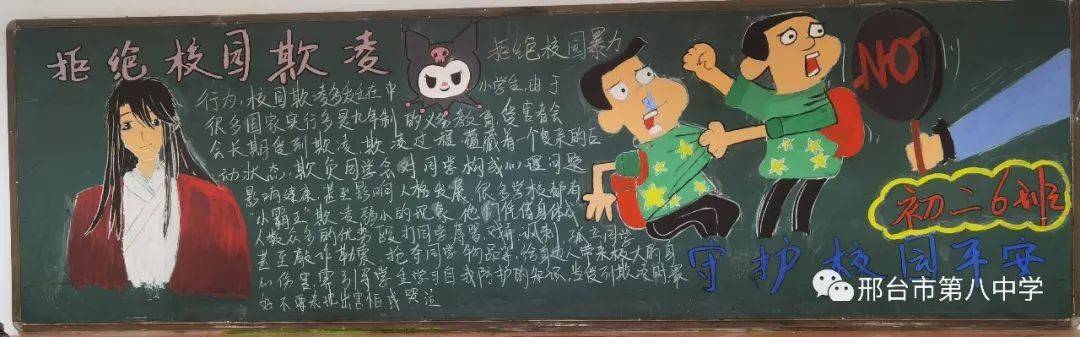 拒绝校园欺凌
拒绝校园暴力
行为,校园欺凌多发生在中小学生,由于
很多国家实行多是九年制的义务教育,受害者会
会长期受到欺凌,欺凌过程,蕴藏着一个复杂的互
动状态,欺负同学会对同学构成心理问题
影响健康,甚至影响人格发展,很多学校都有
“小霸王”欺凌弱小的现象,他们凭借身体或
人数众多的优势殴打同学,辱骂、戏弄、
甚至敲诈勒索、抢夺同学物品等,给身边人带来极大的身
心伤害,要引导学生学习自我防护的知识,当受到欺凌时,要
不要表现出害怕或哭泣
NO
初二6班
守护校园平安
邢台市第八中学